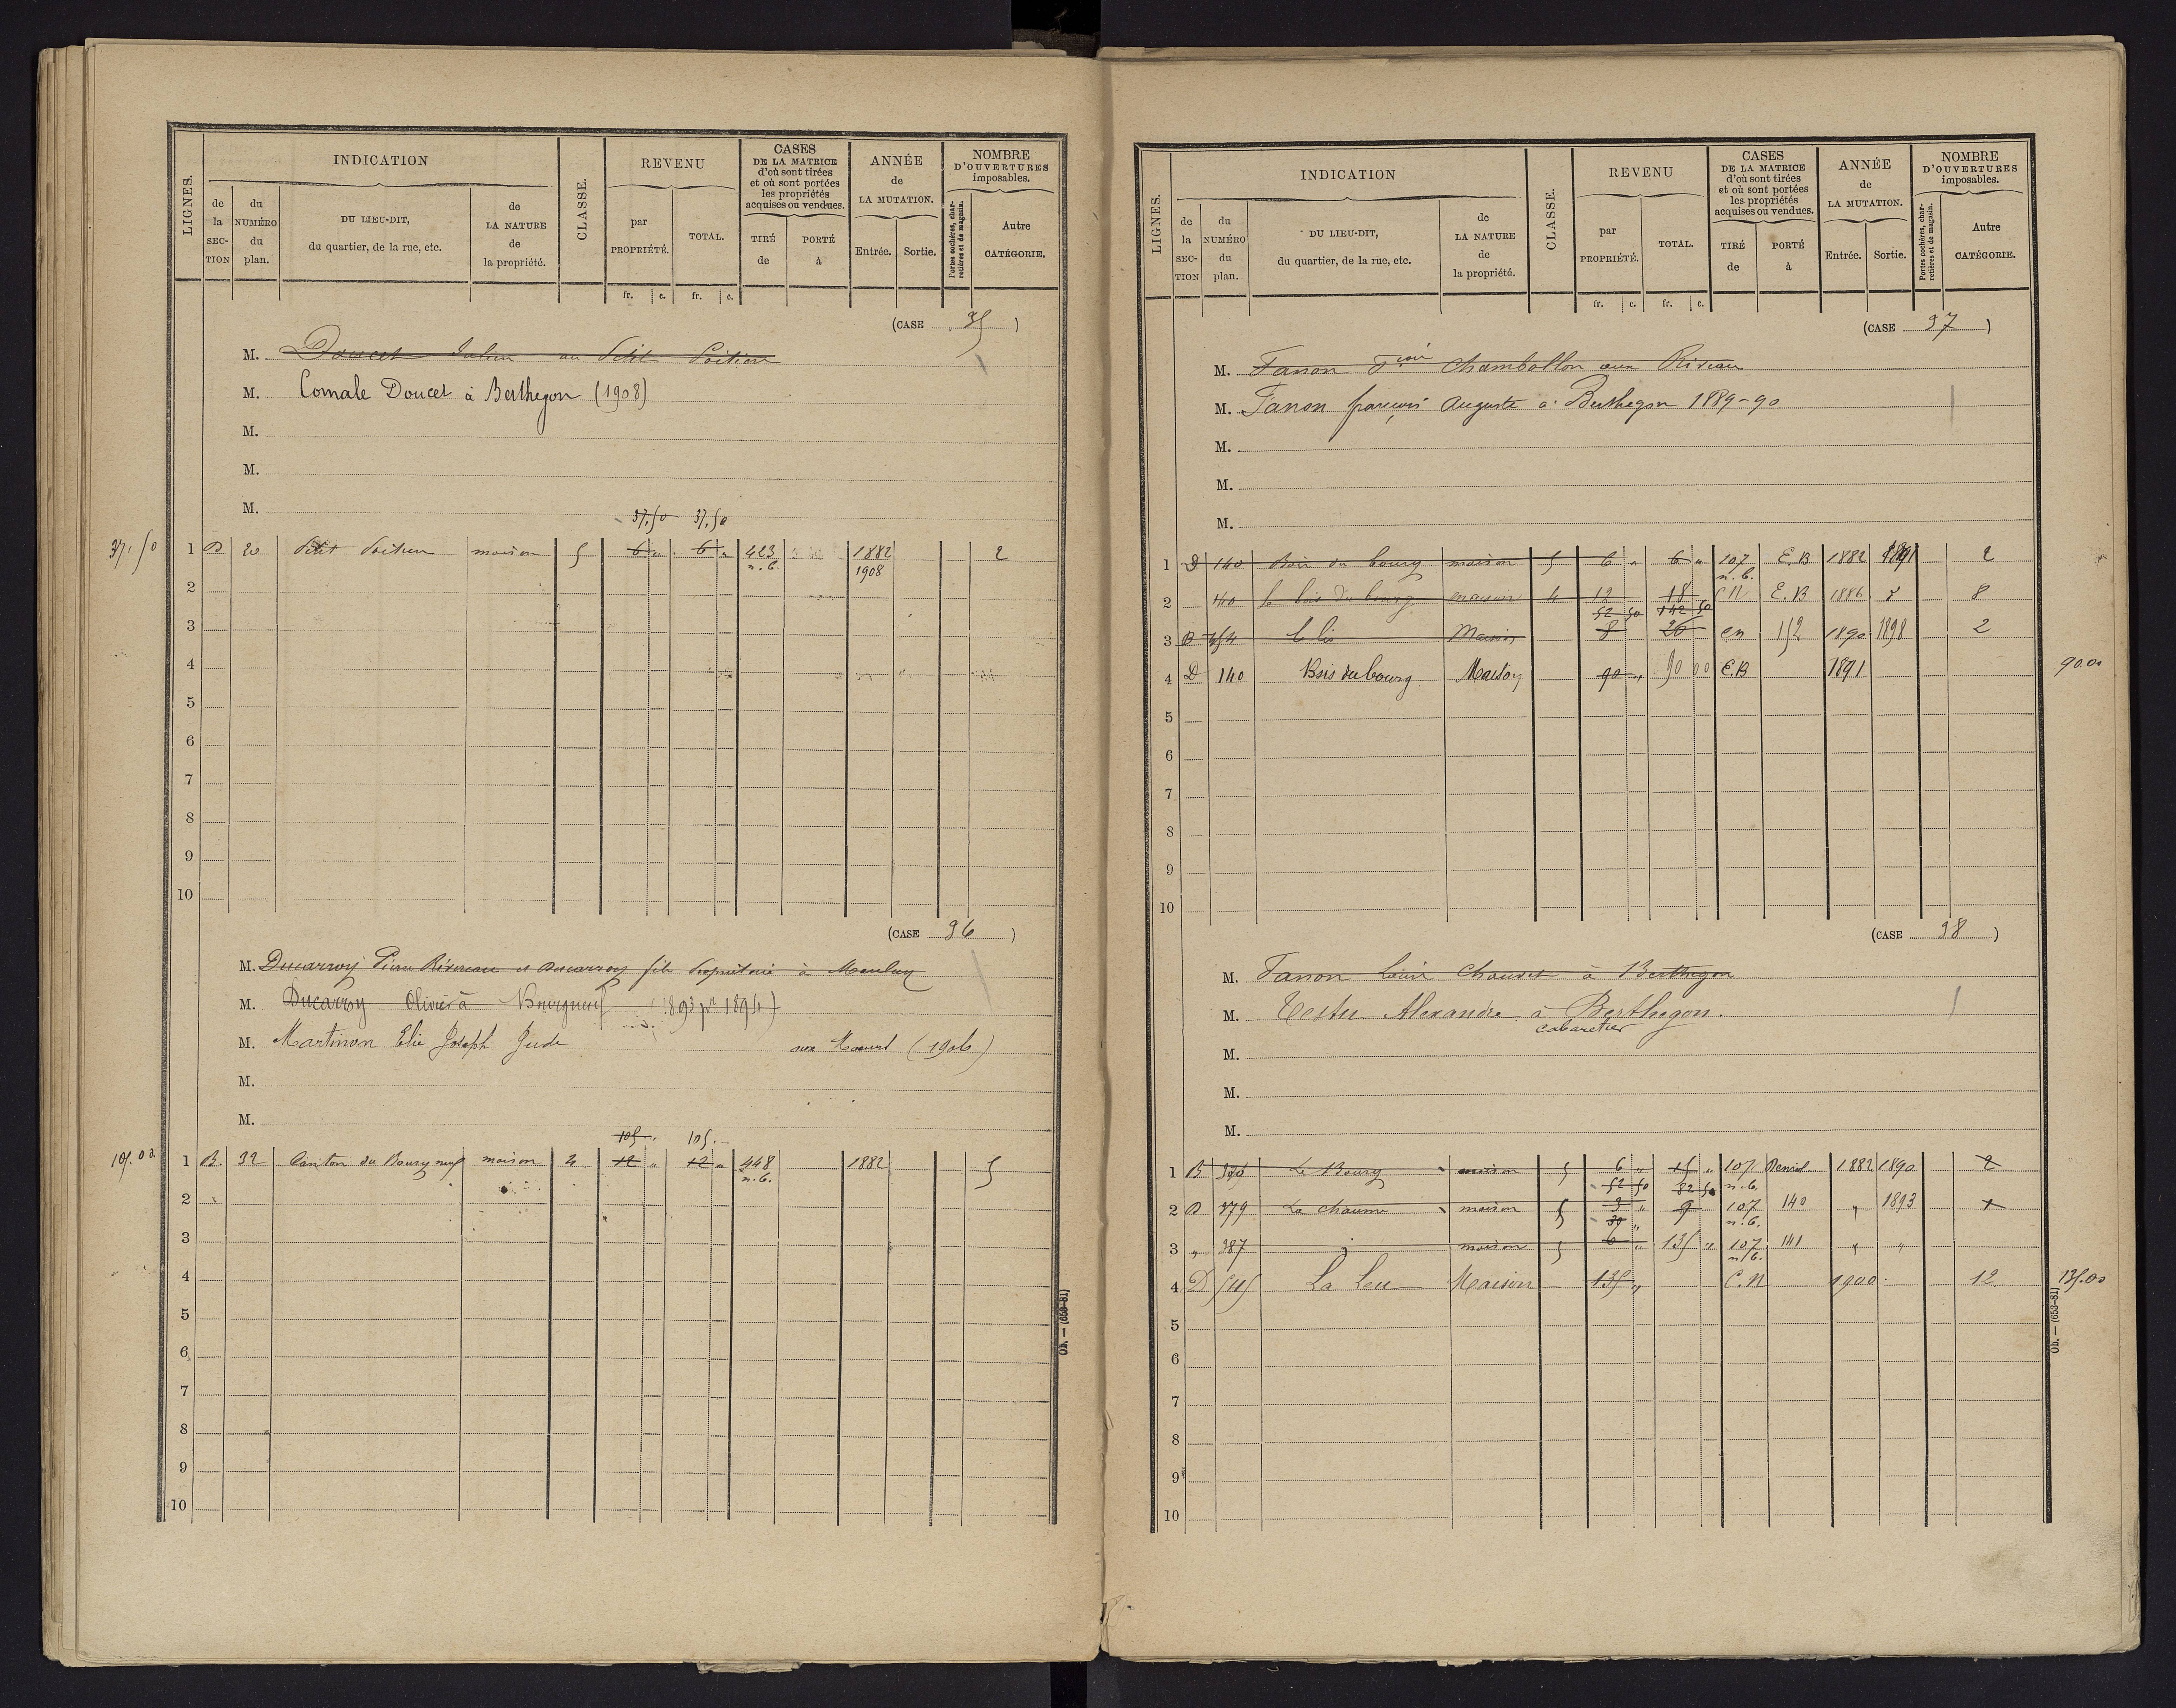 LIGNES. INDICATION CLASSE. REVENU CASES DE LA MATRICE d'où sont tirées et où sont portées les propriétés acquises ou vendues. ANNÉE de LA MUTATION. NOMBRE D'OUVERTURES imposables.
de la SECTION du NUMÉRO du plan. DU LIEU-DIT, du quartier, de la rue, etc. de LA NATURE de la propriété. par PROPRIÉTÉ. TOTAL. TIRÉ de PORTÉ à Entrée. Sortie. Portes cochères, charretières et de magasin. Autre CATÉGORIE.
fr. c. fr. c.
(CASE 95)
M. Doucet au Petit Poitiers
M. Comale Doucet à Berthegon (1908)
M.
M.
M.
37,50 37,50
37,50 1 D 20 Petit Poitiers maison 5 6 " 6 " 423 1882 2
n.b. 1908
2
3
4
5
6
7
8
9
10
(CASE 96)
M. Ducarroy Pierre et Ducarroy fils Propriétaire à
M. Ducarroy Olivier à Bourgneuf (1893 pr 1894)
M. Martinon Elie Joseph Jude aux (1906)
M.
M.
105. 105.
105.00 1 B. 32 Canton du Bourg neuf maison 4 12 " 12 " 448 1882 5
n.b.
2
3
4
5
6
7
8
9
10
Ob. — (653-81)
LIGNES. INDICATION CLASSE. REVENU CASES DE LA MATRICE d'où sont tirées et où sont portées les propriétés acquises ou vendues. ANNÉE de LA MUTATION. NOMBRE D'OUVERTURES imposables.
de la SECTION du NUMÉRO du plan. DU LIEU-DIT, du quartier, de la rue, etc. de LA NATURE de la propriété. par PROPRIÉTÉ. TOTAL. TIRÉ de PORTÉ à Entrée. Sortie. Portes cochères, charretières et de magasin. Autre CATÉGORIE.
fr. c. fr. c.
(CASE 97)
M. Fanon Chambollon aux
M. Fanon françois Auguste à Berthegon 1889-90
M.
M.
M.
1 D 140 Bois du bourg maison 5 6 " 6 " 107 E.B 1882 1891 2
n.b.
2 140 le bois du bourg maison 4 12 18 C.N E.B 1886 8
52 50 142 50
3 B Maison 8 26 en 152 1890 1898 2
4 D 140 Bois du bourg Maison 90 " 90 00 E.B 1891 90.00
5
6
7
8
9
10
(CASE 98)
M. Fanon Louis Chauvet à Berthegon
M. Testu Alexandre à Berthegon.
cabaretier
M.
M.
M.
1 B 370 Le Bourg maison 5 6 " 15 " 107 1882 1890 2
52 50 82 50 n.b.
2 D 379 La chaume maison 5 3 " 9 107 140 " 1893 1
30 " n.b.
3 " 387 maison 5 6 " 135 " 107 141 " "
n.b.
4 D La Leu Maison 135 " C.N 1900 12 135.00
5
6
7
8
9
10
Ob. — (653-81)